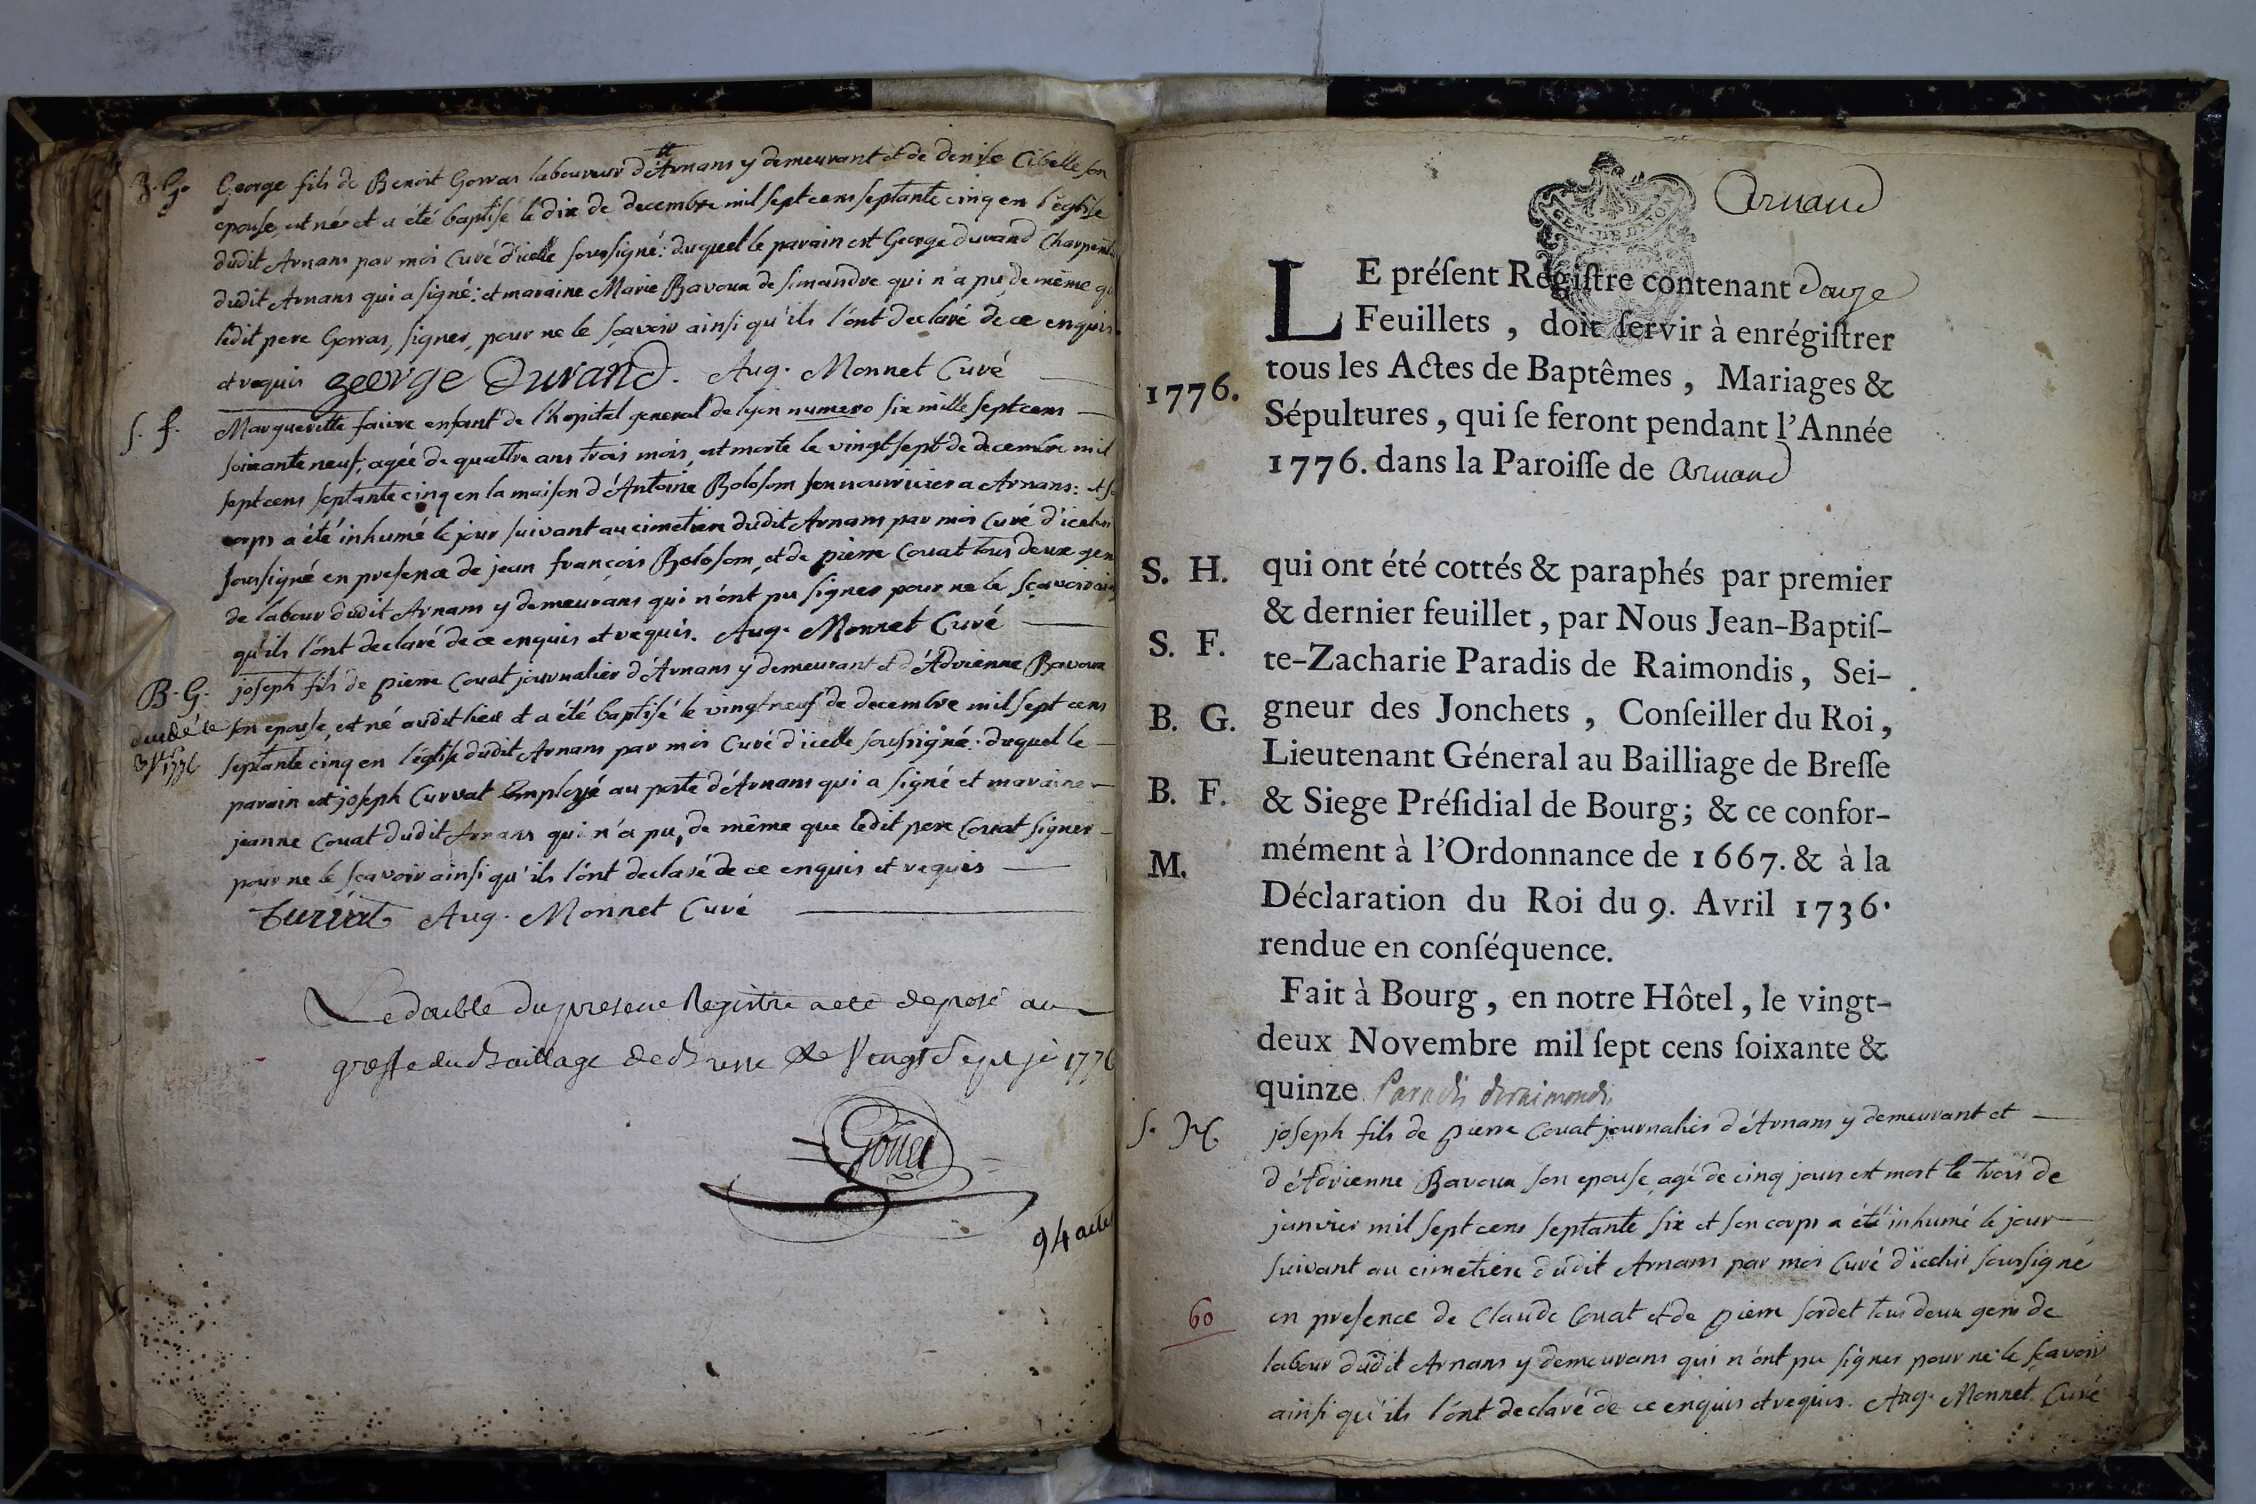 B. G. George fils de Benoit Gorras laboureur dud.t Arnans y demeurant et de denise Cibelle son
epouse, est né et a été baptisé le dix de decembre mil sept cens septante cinq en l'eglise
dudit Arnans par moi Curé d'icelle soussigné: duquel le parain est George durand Charpent
dudit Arnans qui a signé: et maraine Marie Bavoux de simandre qui n'a pu, de même q
ledit pere Gorras, signer, pour ne le sçavoir ainsi qu'ils l'ont declaré de ce enquis
et requis george Durand. Aug. Monnet Curé
s. f. Marguerite faivre enfant de l'hopital general de lyon numero six mille sept cens
soixante neuf, agée de quattre ans trois mois, est morte le vingt sept de decembre mil
sept cens septante cinq en la maison d'Antoine Bolosom son nourricier a Arnans: et so
corps a été inhumé le jour suivant au cimetiere dudit Arnans par moi Curé d'icelui
soussigné en presence de jean françois Bolosom, et de pierre Couat tous deux gen
de labour dudit Arnans y demeurans qui n'ont pu signer pour ne le sçavoir ain
qu'ils l'ont declaré de ce enquis et requis. Aug. Monnet Curé
B. G. joseph fils de pierre Couat journalier d'Arnans y demeurant et d'Adrienne Bavoux
son epouse, est né audit lieu et a été baptisé le vingt neuf de decembre mil sept cens
septante cinq en l'eglise dudit Arnans par moi Curé d'icelle soussigné: duquel le
parain est joseph Curvat Employé au poste d'Arnans qui a signé et maraine
jeanne Couat dudit Arnans qui n'a pu, de même que ledit pere Couat signer
pour ne le sçavoir ainsi qu'ils l'ont declaré de ce enquis et requis
Aug. Monnet Curé
Le double du present Registre a eté deposé au
greffe du Baillage de Bresse le Vingt Sept 1776
94 actes
Arnand
LE préſent Régiſtre contenant douze
Feuillets, doit ſervir à enrégiſtrer
tous les Actes de Baptêmes, Mariages &
1776.
Sépultures, qui ſe feront pendant l'Année
1776. dans la Paroiſſe de Arnand
S. H. qui ont été cottés & paraphés par premier
& dernier feuillet, par Nous Jean-Baptiſ-
S. F. te-Zacharie Paradis de Raimondis, Sei-
B. G. gneur des Jonchets, Conſeiller du Roi,
Lieutenant Géneral au Bailliage de Breſſe
B. F. & Siege Préſidial de Bourg; & ce confor-
M. mément à l'Ordonnance de 1667. & à la
Déclaration du Roi du 9. Avril 1736.
rendue en conſéquence.
Fait à Bourg, en notre Hôtel, le vingt-
deux Novembre mil ſept cens ſoixante &
quinze Paradis deraimondis
joseph fils de pierre Couat journalier d'Arnans y demeurant et
d'Adrienne Bavoux son epouse, agé de cinq jours est mort le trois de
janvier mil sept cens septante six et son corps a été inhumé le jour
suivant au cimetiere dudit Arnans par moi Curé d'icelui soussigné
60 en presence de Claude Couat et de pierre sordet tous deux gens de
labour dudit Arnans y demeurans qui n'ont pu signer pour ne le sçavoir
ainsi qu'ils l'ont declaré de ce enquis et requis. Aug. Monnet Curé